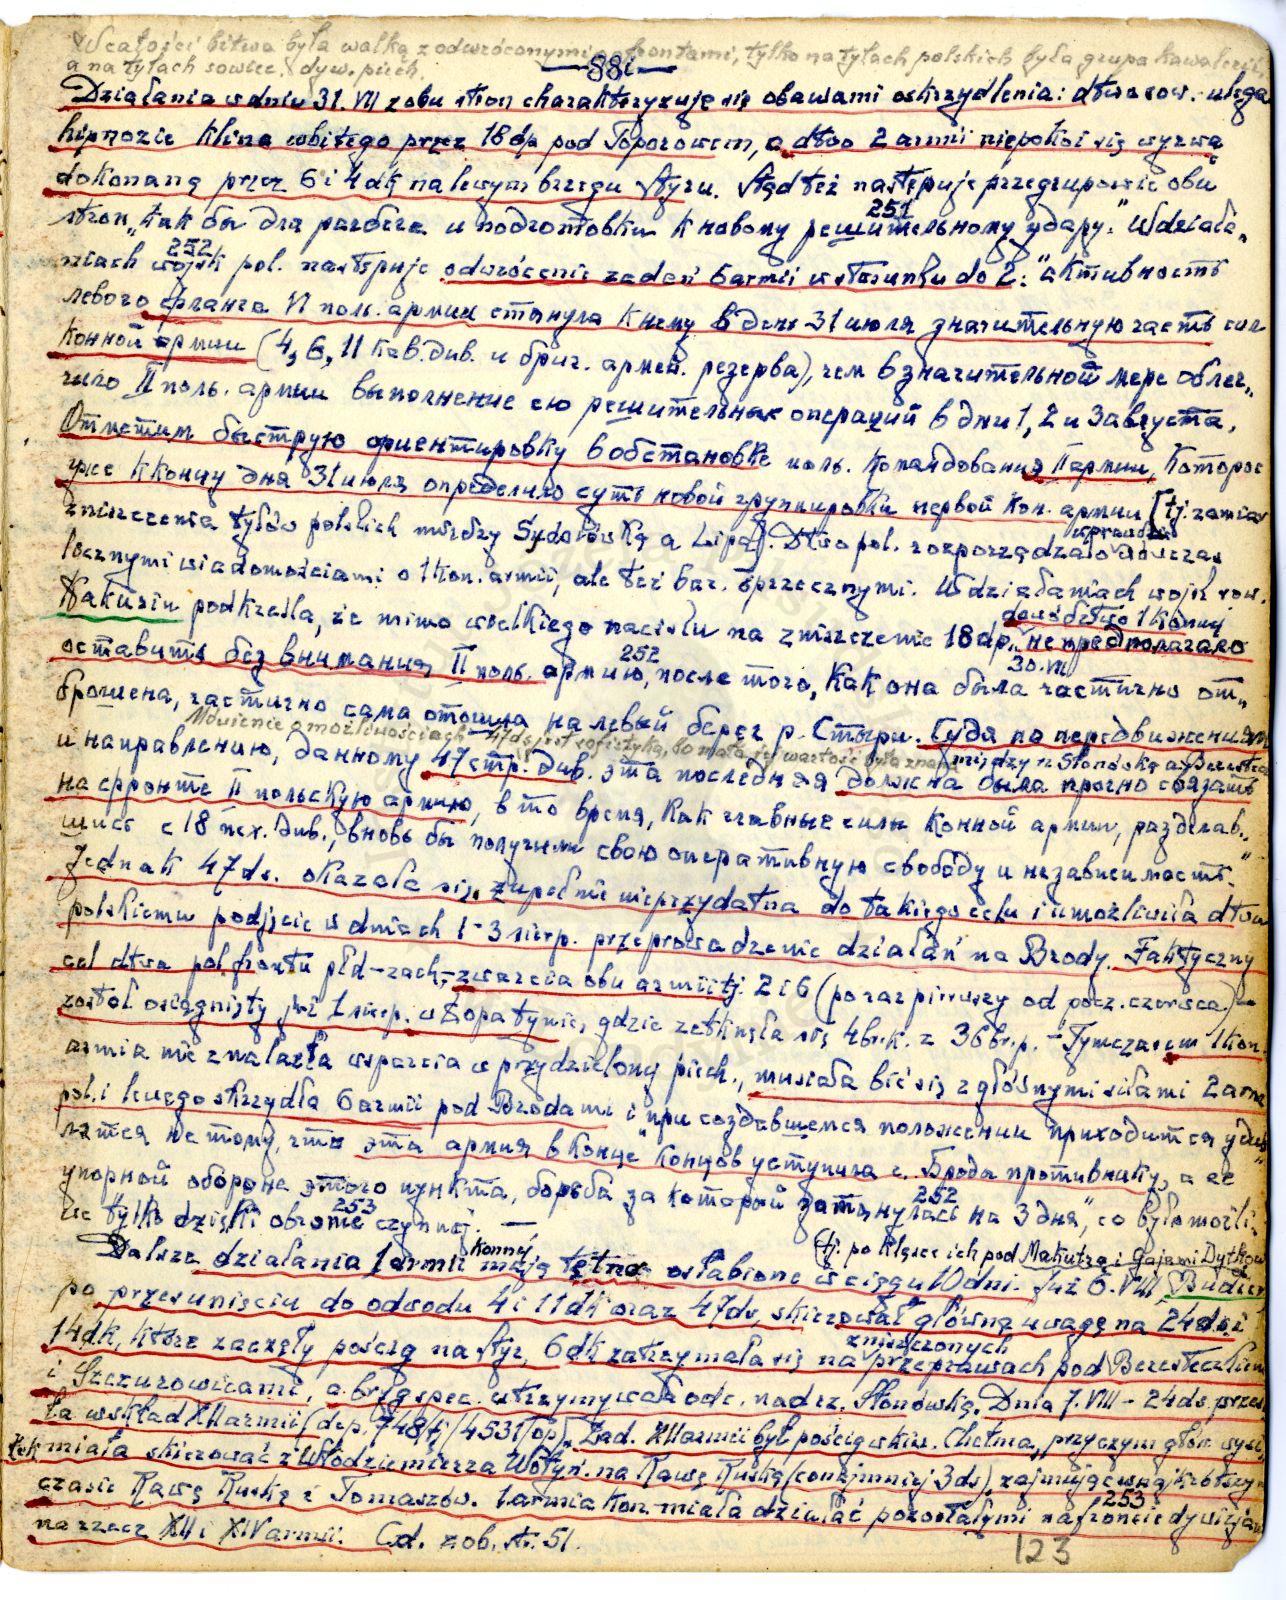 W całości bitwa była walką z odwróconymi frontami, tylko na tyłach polskich była grupa kawalerii,
— 88i —
a na tyłach sowiec. dyw. piech.
Działania w dniu 31. VII z obu stron charakteryzuje się obawami oskrzydlenia: dtwo sow. ulega
hipnozie klina wbitego przez 18 dp pod Toporowem, a dtwo 2 armii niepokoi się wyrwą
dokonaną przez 6 i 4 dk na lewym brzegu Styru. Stąd też następuje przegrupowanie obu
stron „как бы для разбега и подготовки к новому решительному удару." 251 W działa„
niach wojsk pol. 252 następuje odwrócenie zadań 6 armii w stosunku do 2: "активность
левого фланга VI поль. армии стянула к нему в день 31 июля значительную часть сил
конной армии (4, 6, 11 кав. див. и бриг. армей. резерва), чем в значительной мере облег„
чило II поль. армии выполнение ею решительных операций в дни 1, 2 и 3 августа.
Отметим быструю ориентировку в обстановке поль. командования II армии, которое
уже к концу дня 31 июля определило суть новой группировки первой кон. армии [tj. zamiar
zniszczenia tyłów polskich między Sydonówką a Lipą]. Dtwo pol. rozporządzało wprawdzie wówczas
licznymi wiadomościami o 1 kon. armii, ale też bar. sprzecznymi. W działaniach wojsk sow.
Kakurin podkreśla, że mimo wielkiego nacisku na zniszczenie 18 dp. dowództwo 1 Konnej „не предполагало
оставить без внимания II поль. армию, 252 после того, как она была 30. VII частично от„
брошена, частично сама отошла на левый берег р. Стыри. Судя по передвижениям
Mówienie o możliwościach 47 ds jest sofistyką, bo mała jej wartość była znana
и направлению, данному 47 стр. див. эта последняя между р. Słonówką a Beresteczk.
должна была прочно связать
на фронте II польскую армию, в то время, как главные силы конной армии, разделав„
шись с 18 пех. див., вновь бы получили свою оперативную свободу и независимость."
Jednak 47 ds. okazała się zupełnie nieprzydatna do takiego celu i umożliwiła dtwu
polskiemu podjęcie w dniach 1–3 sierp. przeprowadzenie działań na Brody. Faktyczny
cel dtwa pol. frontu płd-zach,– zwarcia obu armii tj. 2 i 6 (po raz pierwszy od pocz. czerwca.)–
został osiągnięty już 1 sierp. w Łopatynie, gdzie zetknęła się 4 br.k. z 36 br.p. – Tymczasem 1 kon.
armia nie znalazła wsparcia w przydzielonej piech., musiała bić się z głównymi siłami 2 arm.
pol. i lewego skrzydła 6 armii pod Brodami i „при создавшемся положении приходится удив„
ляться не тому, что эта армия в конце концов уступила г. Броды противнику, а ее
упорной обороне этого пункта, борьба за который затянулась на 3 дня", 252 co było możli„
we tylko dzięki obronie czynnej. 253 —
(tj. po klęsce ich pod Makutrą i Gajami Dytkow.
Dalsze działania 1 armii konnej mają tętno osłabione w ciągu 10 dni. Już 6. VIII, Budien.
po przesunięciu do odwodu 4 i 11 dk oraz 47 ds, skierował główną uwagę na 24 ds. i
14 dk, które zaczęły pościg na Styr, 6 dk zatrzymała się na zniszczonych przeprawach pod Beresteczkiem
i Szczurowicami, a bryg. spec. utrzymywała odc. nad rz. Słonówką. Dnia 7. VIII – 24 ds. przesz„
ła w skład XII armii (dep. 748/t)/4531/op). Zad. XII armii był pościg w kier. Chełma, przy czym głów. wysi„
łek miała skierować z Włodzimierza Wołyń. na Rawę Ruską (conajmniej 3 ds), zajmując w najkrótszym
czasie Rawę Ruską i Tomaszów. 1 armia kon. miała działać pozostałymi na froncie dywizjami 253
na rzecz XII i XIV armii. Cd. zob. str. 51.
123